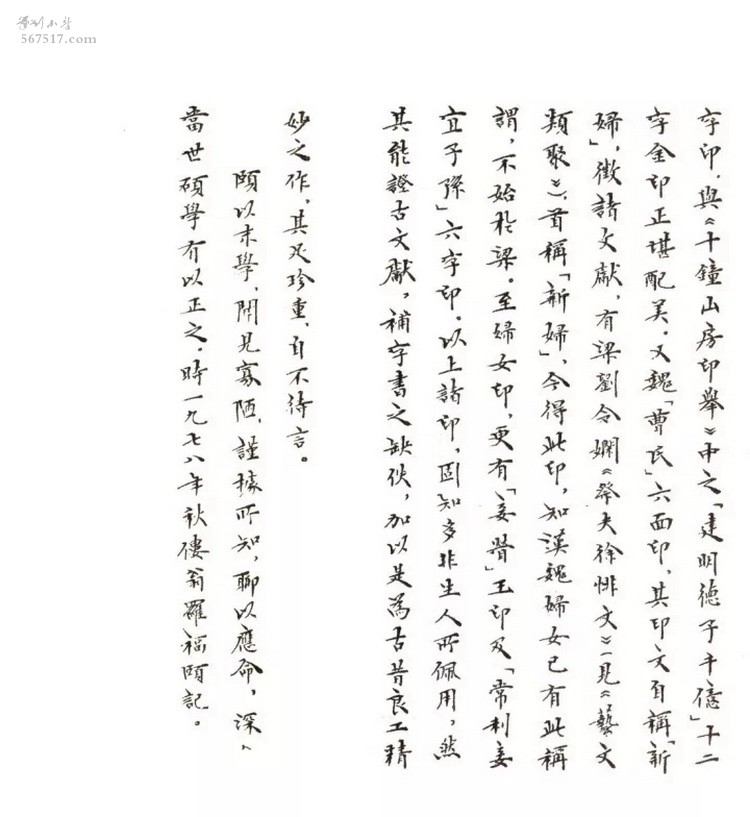 篆刻小站
567517.com
字印，與《十鐘山房印舉》中之「建明德子千億」十二
字金印正堪配美。又魏「曹氏」六面印，其印文自稱「新
婦」，徵諸文獻，有梁劉令嫻《祭夫徐悱文》（見《藝文
類聚》），首稱「新婦」，今得此印，知漢魏婦女已有此稱
謂，不始於梁。至婦女印，更有「妾䝿」玉印及「常利妾
宜子孫」六字印。以上諸印，固知多非生人所佩用，然
其能證古文獻，補字書之缺佚，加以是為古昔良工精
妙之作，其足珍重，自不待言。
頤以末學，聞見寡陋，謹據所知，聊以應命，深冀
當世碩學有以正之。時一九七八年秋僂翁羅福頤記。